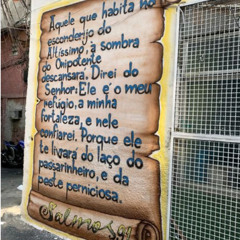 Aquele que habita no
esconderijo do
Altíssimo, à sombra
do Onipotente
descansará. Direi do
Senhor: Ele é o meu
refúgio, a minha
fortaleza, e nele
confiarei. Porque ele
te livrará do laço do
passarinheiro, e da
peste perniciosa.
Salmos 91